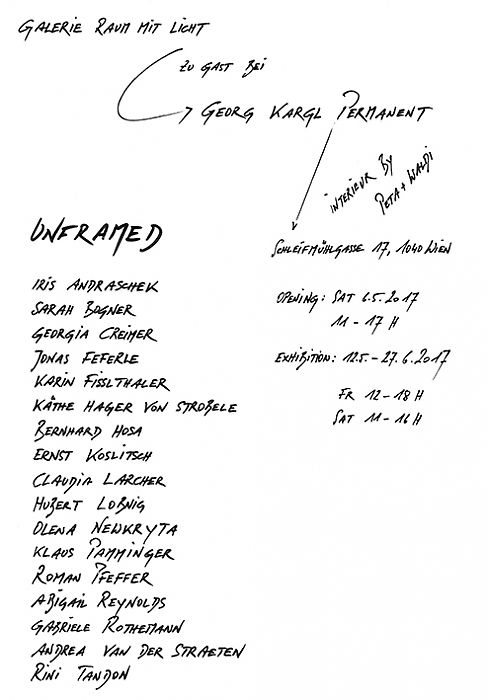 GALERIE RAUM MIT LICHT
ZU GAST BEI
GEORG KARGL PERMANENT
INTERIEUR BY
PETA + WALDI
UNFRAMED
SCHLEIFMÜHLGASSE 17, 1040 WIEN
IRIS ANDRASCHEK
SARAH BOGNER
GEORGIA CREIMER
JONAS FEFERLE
KARIN FISSLTHALER
KÄTHE HAGER VON STROBELE
BERNHARD HOSA
ERNST KOSLITSCH
CLAUDIA LARCHER
HUBERT LOBNIG
OLENA NEWKRYTA
KLAUS PAMMINGER
ROMAN PFEFFER
ABIGAIL REYNOLDS
GABRIELE ROTHEMANN
ANDREA VAN DER STRAETEN
RINI TANDON
OPENING: SAT 6.5.2017
11 - 17 H
EXHIBITION: 12.5. - 27.6.2017
FR 12 - 18 H
SAT 11 - 16 H